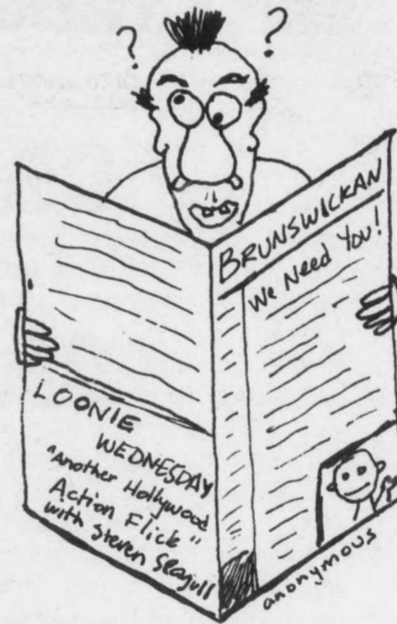 ? ?
BRUNSWICKAN
We Need You!
LOONIE
WEDNESDAY
"Another Hollywood
Action Flick"
with Steven Seagull
anonymous